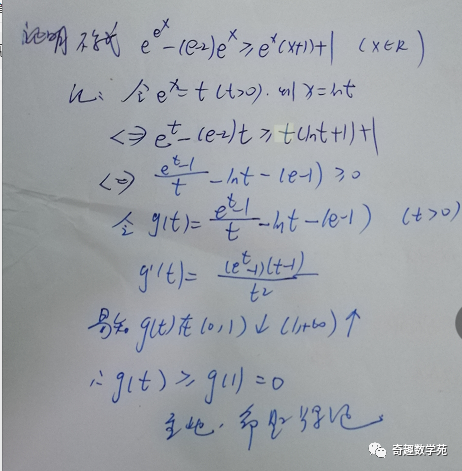 证明不等式 e^{e^x}-(e-2)e^x≥e^x(x+1)+1 (x∈R)
令e^x=t(t>0). 则x=lnt
<=>e^t-(e-2)t≥t(lnt+1)+1
<=> \frac{e^t-1}{t}-lnt-(e-1)≥0
令g(t)=\frac{e^t-1}{t}-lnt-(e-1) (t>0)
g'(t)=\frac{(e^t-1)(t-1)}{t^2}
易知g(t)在(0,1)↓(1,+∞)↑
∴g(t)≥g(1)=0
至此,命题得证
奇趣数学苑